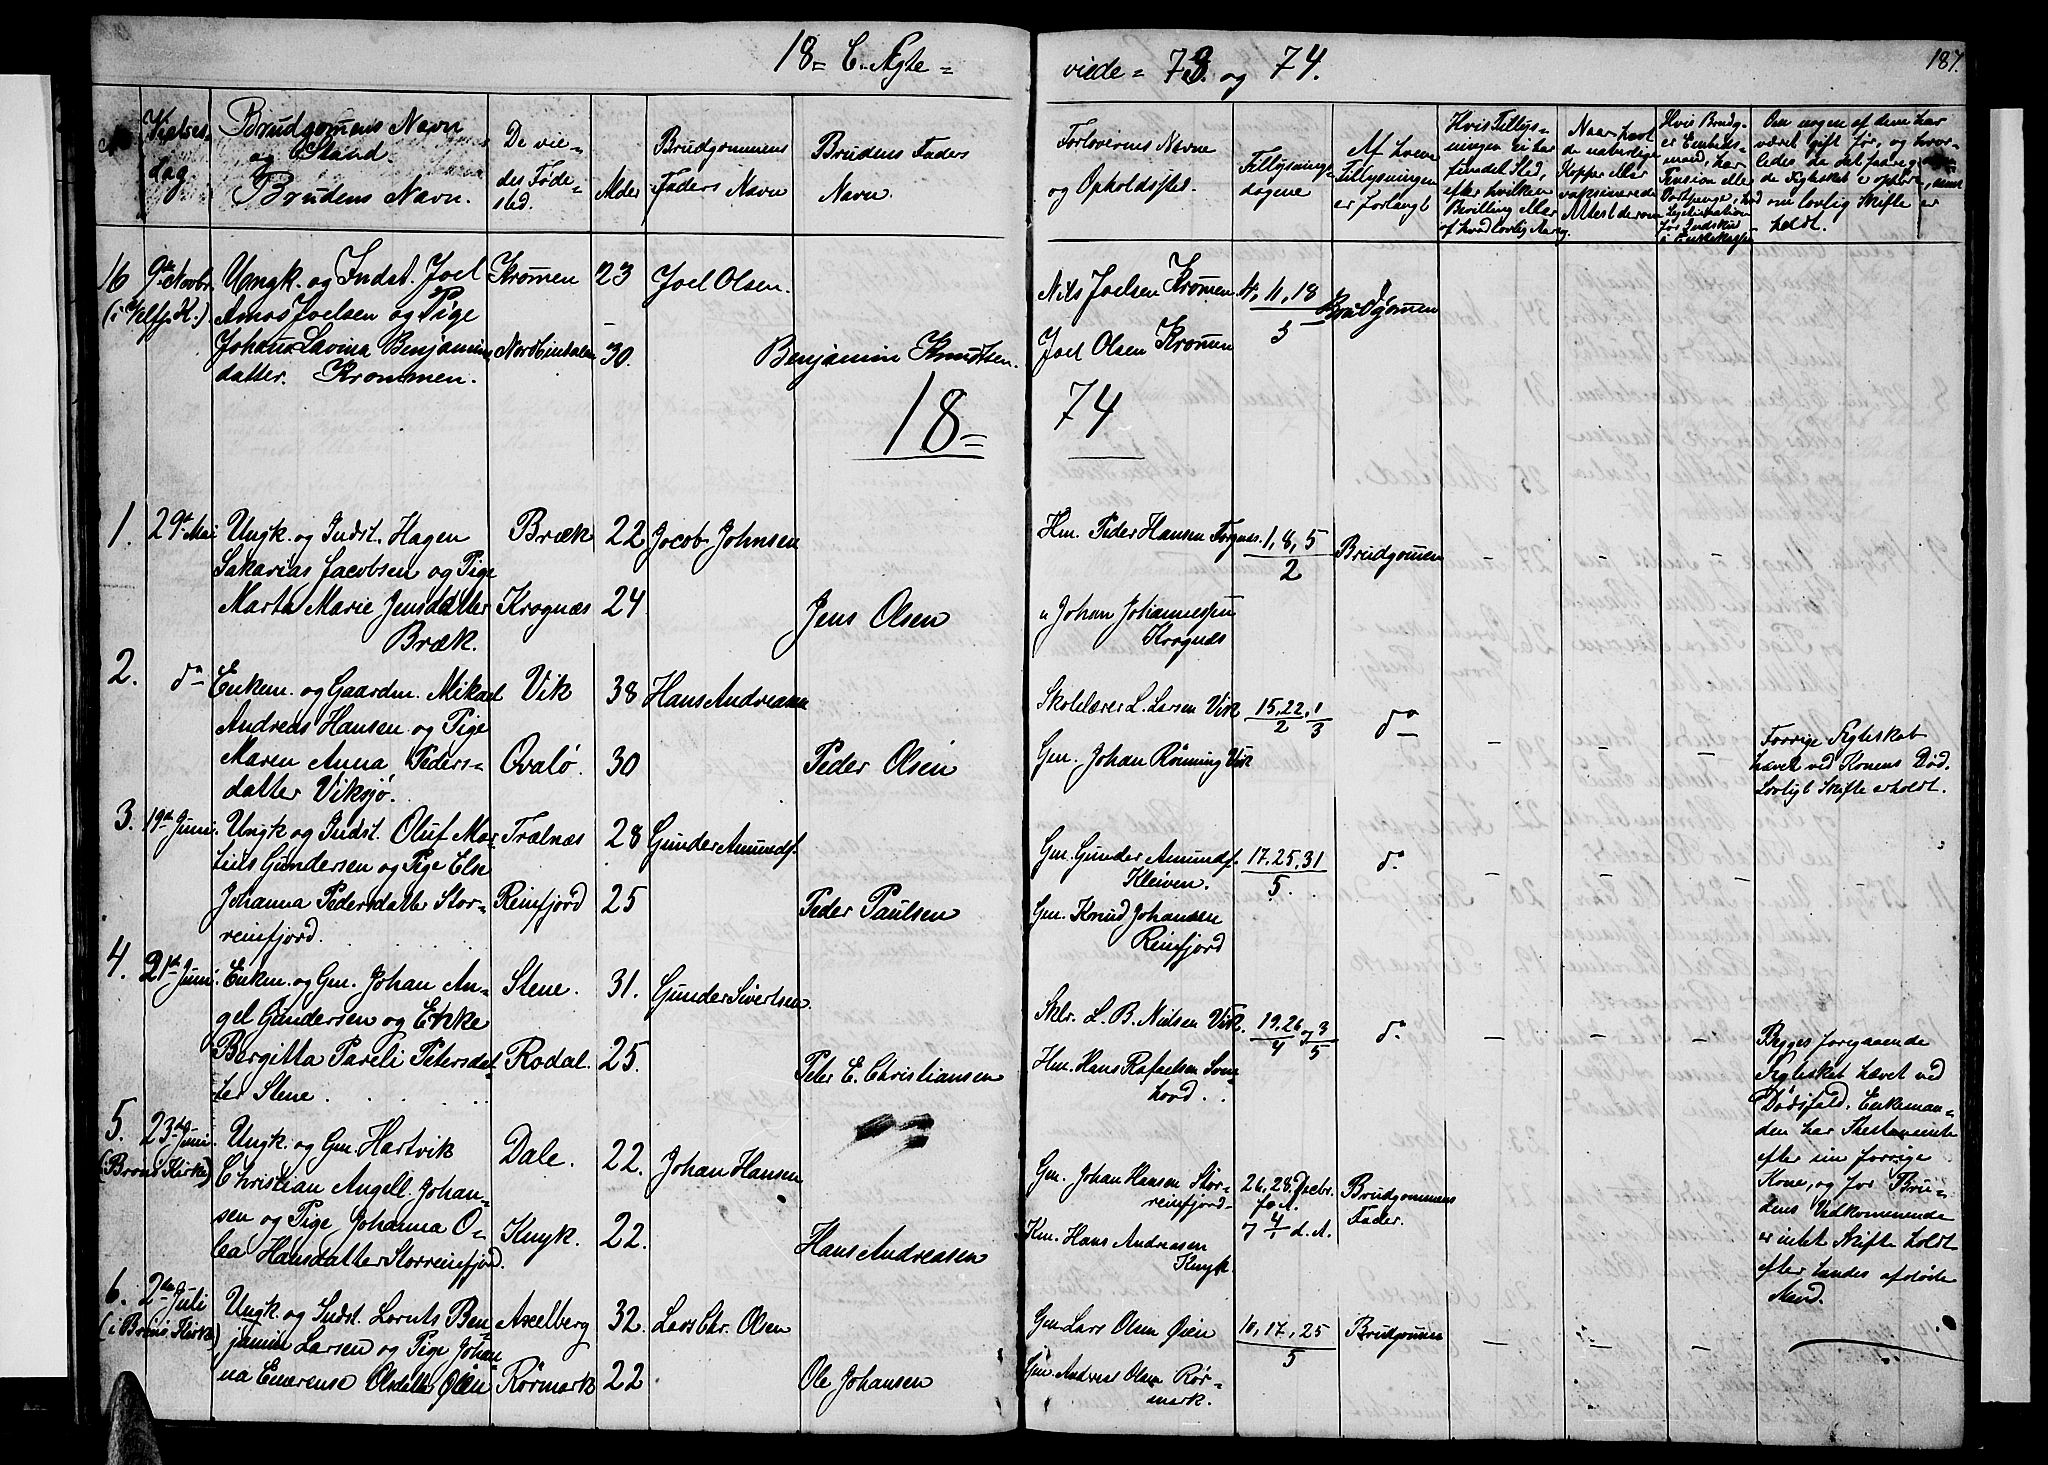 18= C. Ægte=
viede= 73. og 74.
187.
Vielses,
dag
Brudgomens Navn
og Stand.
Brudens Navn.
De vie-
des Føde-
sted.
Alder
Brudgommens
Faders Navn
Brudens Faders
Navn.
Forlovernes Navne
og Opholdssted.
Tillysnings-
dagene
Af hvem
Tillysningen
er forlangt
Hvis Tillys-
ningen ei har
fundet Sted,
efter hvilken
Bevilling eller
af hvad lovlig Aarsag.
Naar havt
de naturlige
Kopper eller
vaksinerede
Attest derom
Hvis Brudg.
er Embeds-
mand, har
Pension eller
Om nogen af dem har
været gift før, og hvor-
ledes da det foregaaende
Ægteskab er ophørt, samt
om lovlig Skifte er
holdt.
16
9de Novbr.
Ungk. og Indst. Joel
Amos Joelsen og Pige
Johana Lavina Benjamins
datter. Krommen.
Kromen
Nordbindalen
23
30.
Joel Olsen.
Benjamin Knudtsen.
Nils Joelsen Kromen
Joel Olsen Kromen
4, 11, 18
5
Brudgomen
18=
74
1.
29de Mai
Ungk. og Indst. Hagen
Sakarias Jacobsen og Pige
Marta Marie Jensdatter
Bræk.
Bræk
Krognæs
22
24
Jacob Johnsen
Jens Olsen
Hm. Peder Hansen Torgnæs.
" Johan Johannessen
Krognæs
1, 8, 5
2
Brudgomen
2.
do
Enkem. og Gaardm. Mikael
Andreas Hansen og Pige
Maren Anna Peders-
datter Viksjø.
Vik
Qvalø.
38
30
Hans Andreasen
Peder Olsen
Skolelærer L. Larsen Vik
Gm. Johan Rønning Vik
15, 22, 1
2 3
do
Forrige Ægteskab
hævet ved Konens Død.
Lovligt Skifte erholdt.
3.
19de Juni.
Ungk og Indst. Oluf Mar-
tius Gundersen og Pige Else
Johanna Pedersdatter Stor-
reinfjord.
Trælnæs
Reinfjord
28
25
Gunder Amunds.
Peder Paulsen
Gm. Gunder Amunds.
Kleiven.
Gm. Knud Johansen
Reinfjord
17, 25, 31
5.
do
4.
21de Juni.
Enkem. og Gm. Johan An-
gel Gundersen og Enke
Bergitta Pareli Petersdat-
ter Stene.
Stene.
Rodal.
31.
25.
Gunder Sivertsen
Peter E. Christiansen
Sklr. L. B. Nielsen Vik.
Hm. Hans Rafaelsen
19, 26 og 3
4 5
do
Begges foregaaende
Ægteskab hævet ved
Dødsfald. Enkeman-
den har Testamente
efter sin forrige
Kone, og for Bru-
dens Vedkomende
er intet Skifte holdt
efter hendes afdøde
Mand.
5.
23de Juni.
(Brønø Kirke)
Ungk. og Gm. Hartvik
Christian Angell Johan-
sen og Pige Johanna O-
lea Hansdatter Storreinfjord.
Dale.
Knyk.
22.
22.
Johan Hansen
Hans Andreasen
Gm. Johan Hansen Stor-
reinfjord
Km. Hans Andreasen
Knyk.
26, 28. Decbr.
f. A.
og 4/1 d. A.
Brudgommens
Fader.
6.
2den Juli
(i Brønø Kirke)
Ungk. og Indst. Lornts Ben-
jamin Larsen og Pige Johan-
na Emerense Olsdatter Øien
Axelberg
Rørmark
32.
22
Lars Chr. Olsen
Ole Johansen
Gm. Lars Olsen Øien
Gm. Andreas Olsen Rør-
mark.
10, 17, 25
5
Brudgomen